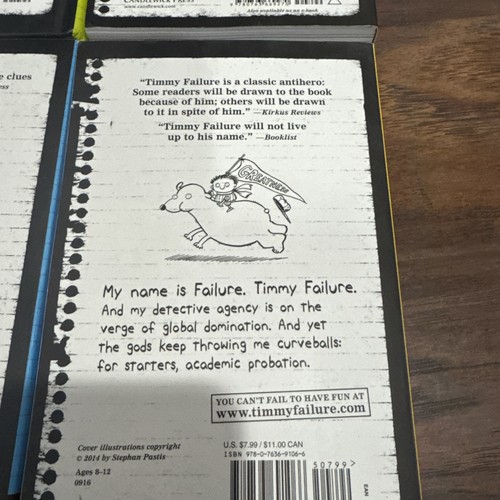 CANDLEWICK PRESS
www.candlewick.com
Also available as an e-book
e clues
"Timmy Failure is a classic antihero:
Some readers will be drawn to the book
because of him; others will be drawn
to it in spite of him." —Kirkus Reviews
"Timmy Failure will not live
up to his name." —Booklist
GREATNESS
My name is Failure. Timmy Failure.
And my detective agency is on the
verge of global domination. And yet
the gods keep throwing me curveballs:
for starters, academic probation.
YOU CAN'T FAIL TO HAVE FUN AT
www.timmyfailure.com
Cover illustrations copyright
© 2014 by Stephan Pastis
Ages 8–12
0916
U.S. $7.99 / $11.00 CAN
ISBN 978-0-7636-9106-6
50799>
EAN